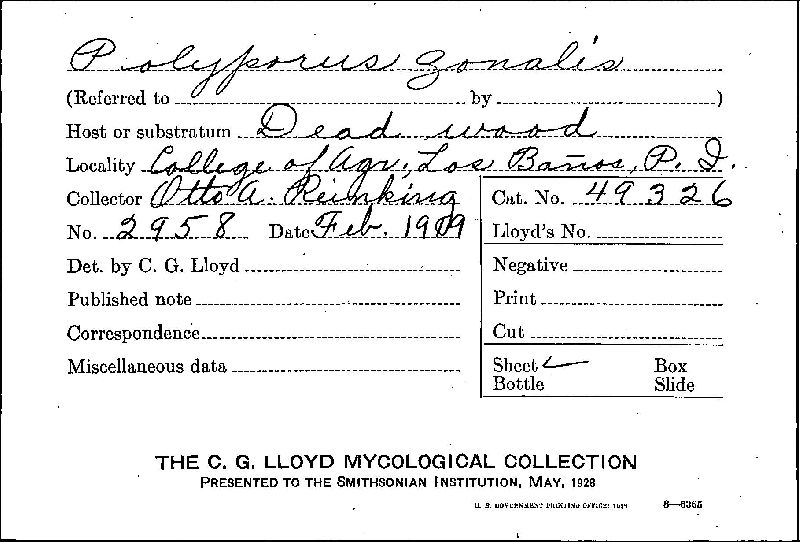 Polyporus zonalis
(Referred to by )
Host or substratum Dead wood
Locality College of Agr., Los Baños, P. I.
Collector Otto A. Reinking
Cat. No. 49326
No. 2958 Date Feb. 1919
Lloyd's No.
Det. by C. G. Lloyd
Negative
Published note
Print
Correspondence
Cut
Miscellaneous data
Sheet Box
Bottle Slide
THE C. G. LLOYD MYCOLOGICAL COLLECTION
PRESENTED TO THE SMITHSONIAN INSTITUTION, MAY, 1928
U. S. GOVERNMENT PRINTING OFFICE:
8—6365